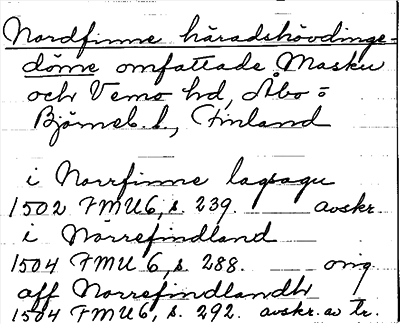 Nordfinne häradshövdinge-
döme omfattade Masku
och Vemo hd, Åbo =
Björneb. l., Finland
i Norrfinne lagsagu
1502 FMU 6, s. 239. avskr.
i Norrefindland
1504 FMU 6, s. 288. orig.
aff Norrefindlandh
1504 FMU 6, s. 292. avskr. av tr.